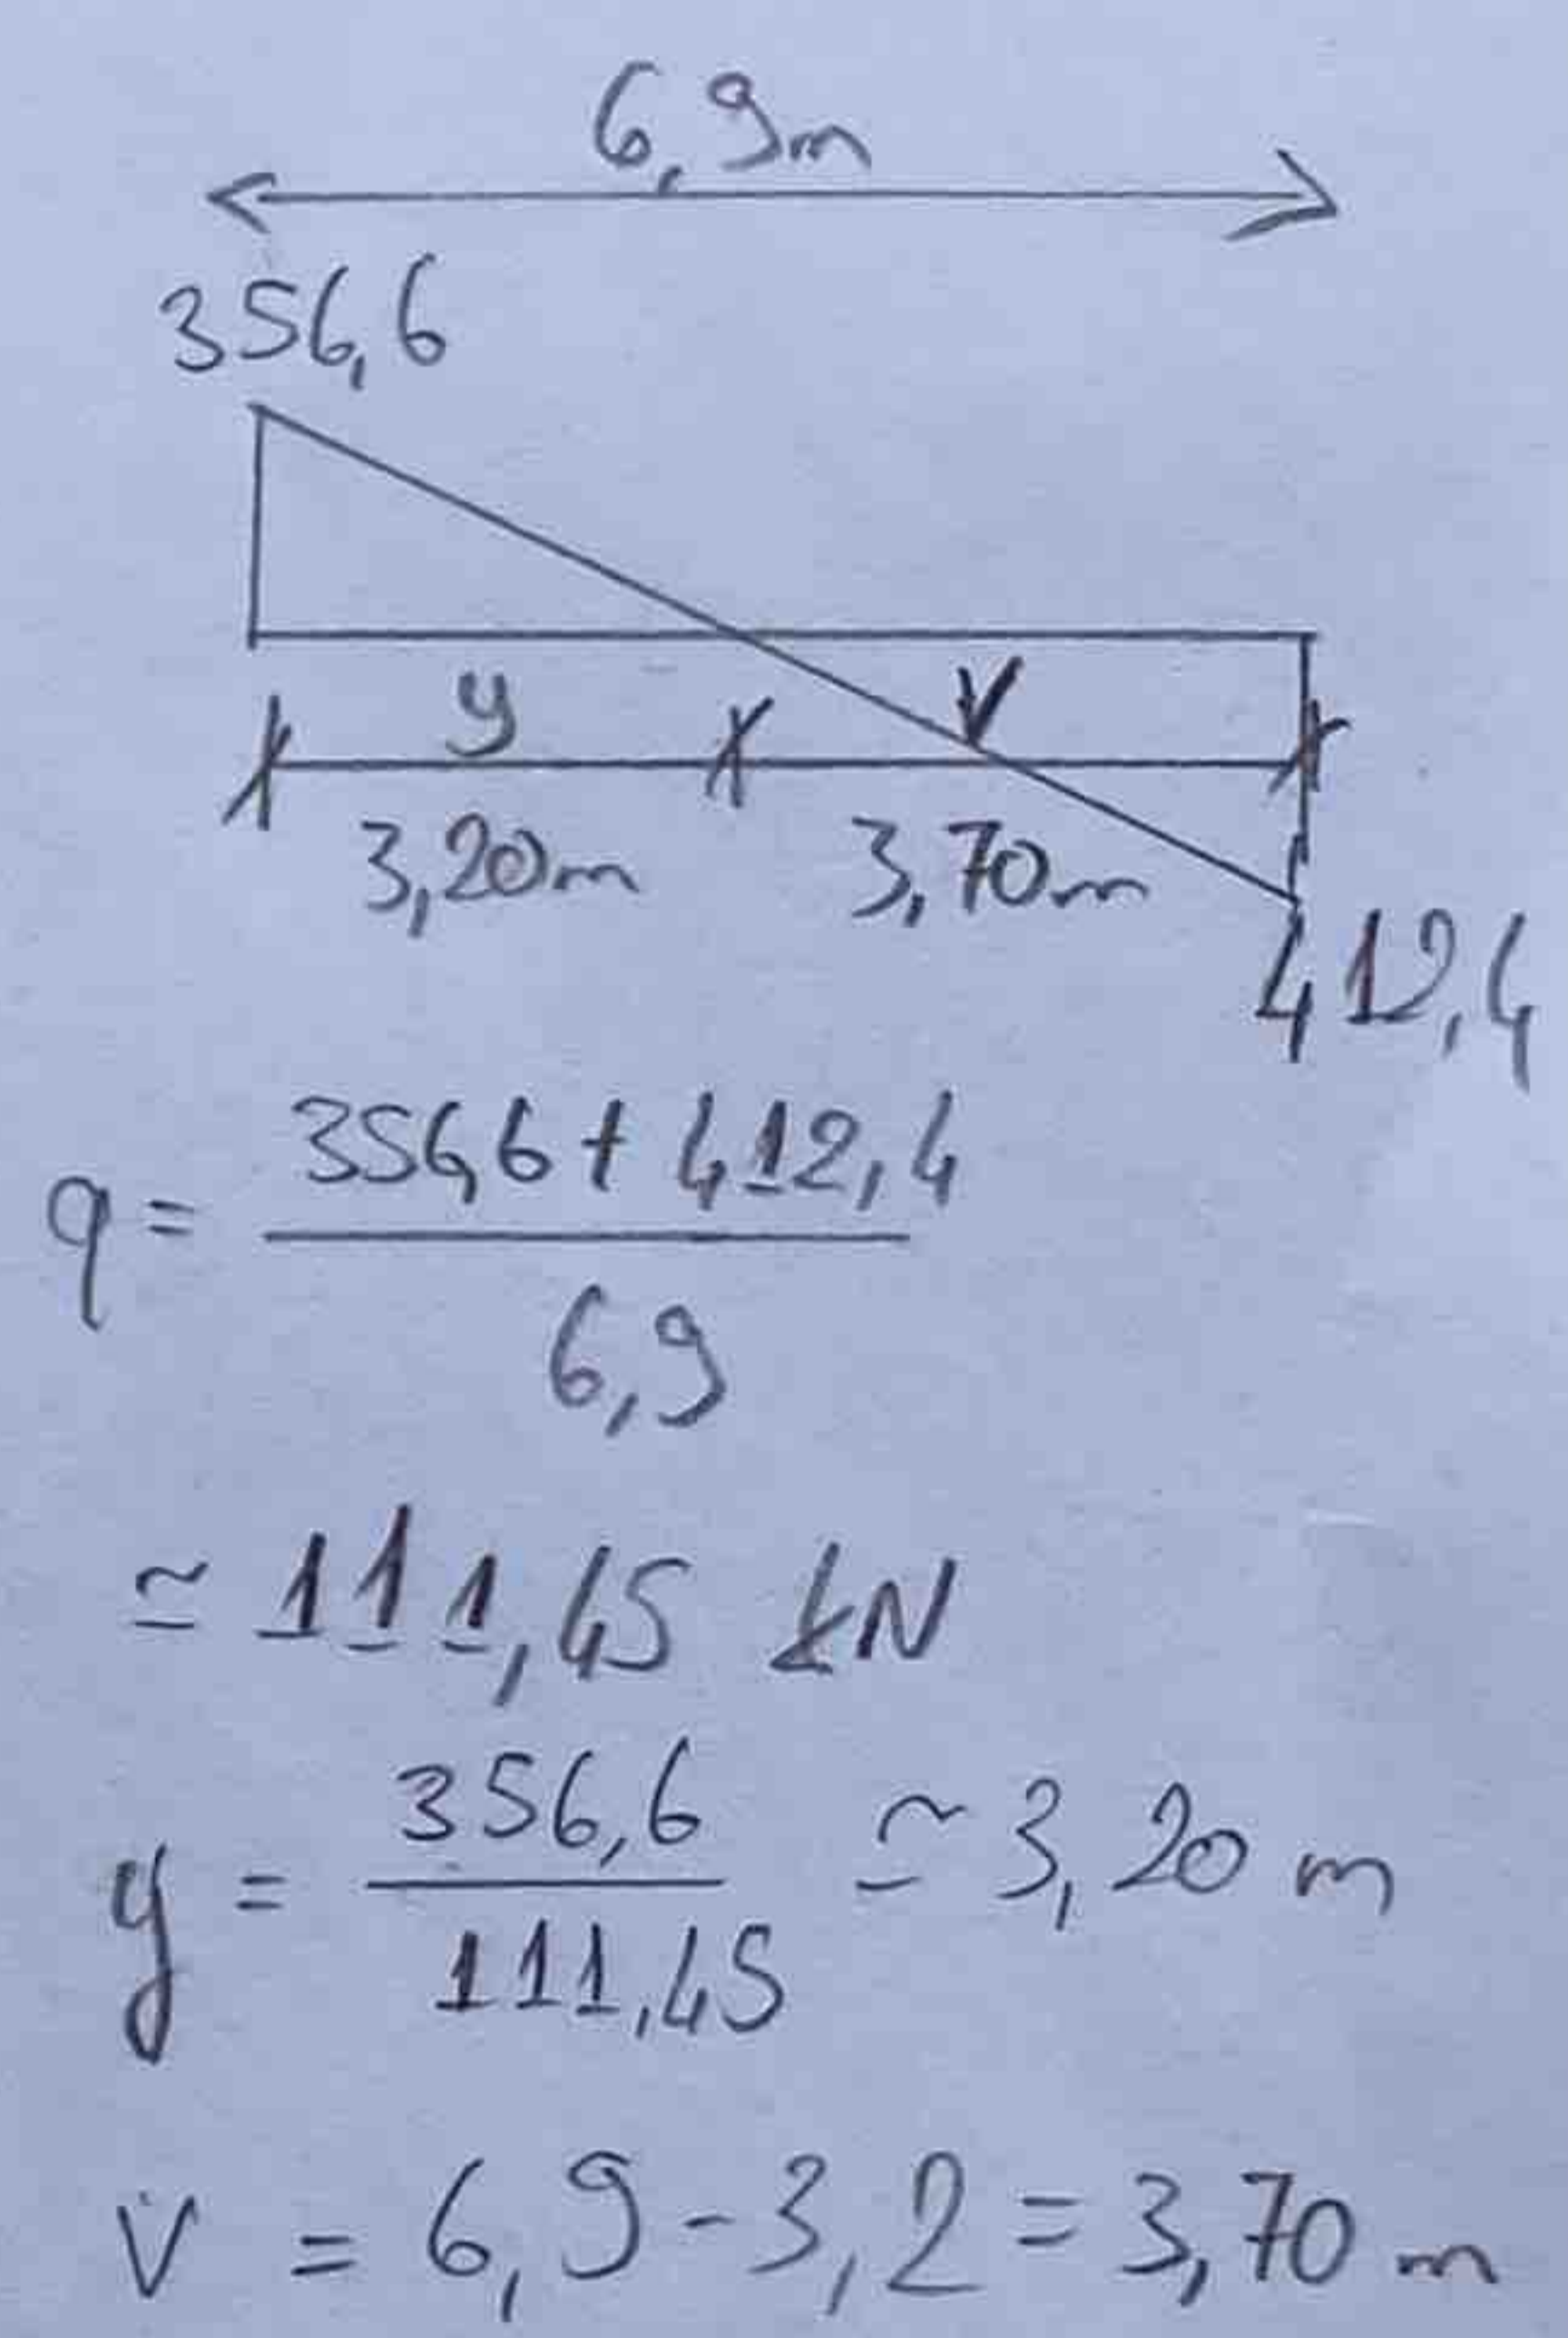 6,9m
356,6
y
V
3,20m
3,70m
412,4
q = (356,6 + 412,4) / 6,9
≃ 111,45 kN
y = 356,6 / 111,45 ≃ 3,20 m
V = 6,9 - 3,2 = 3,70 m